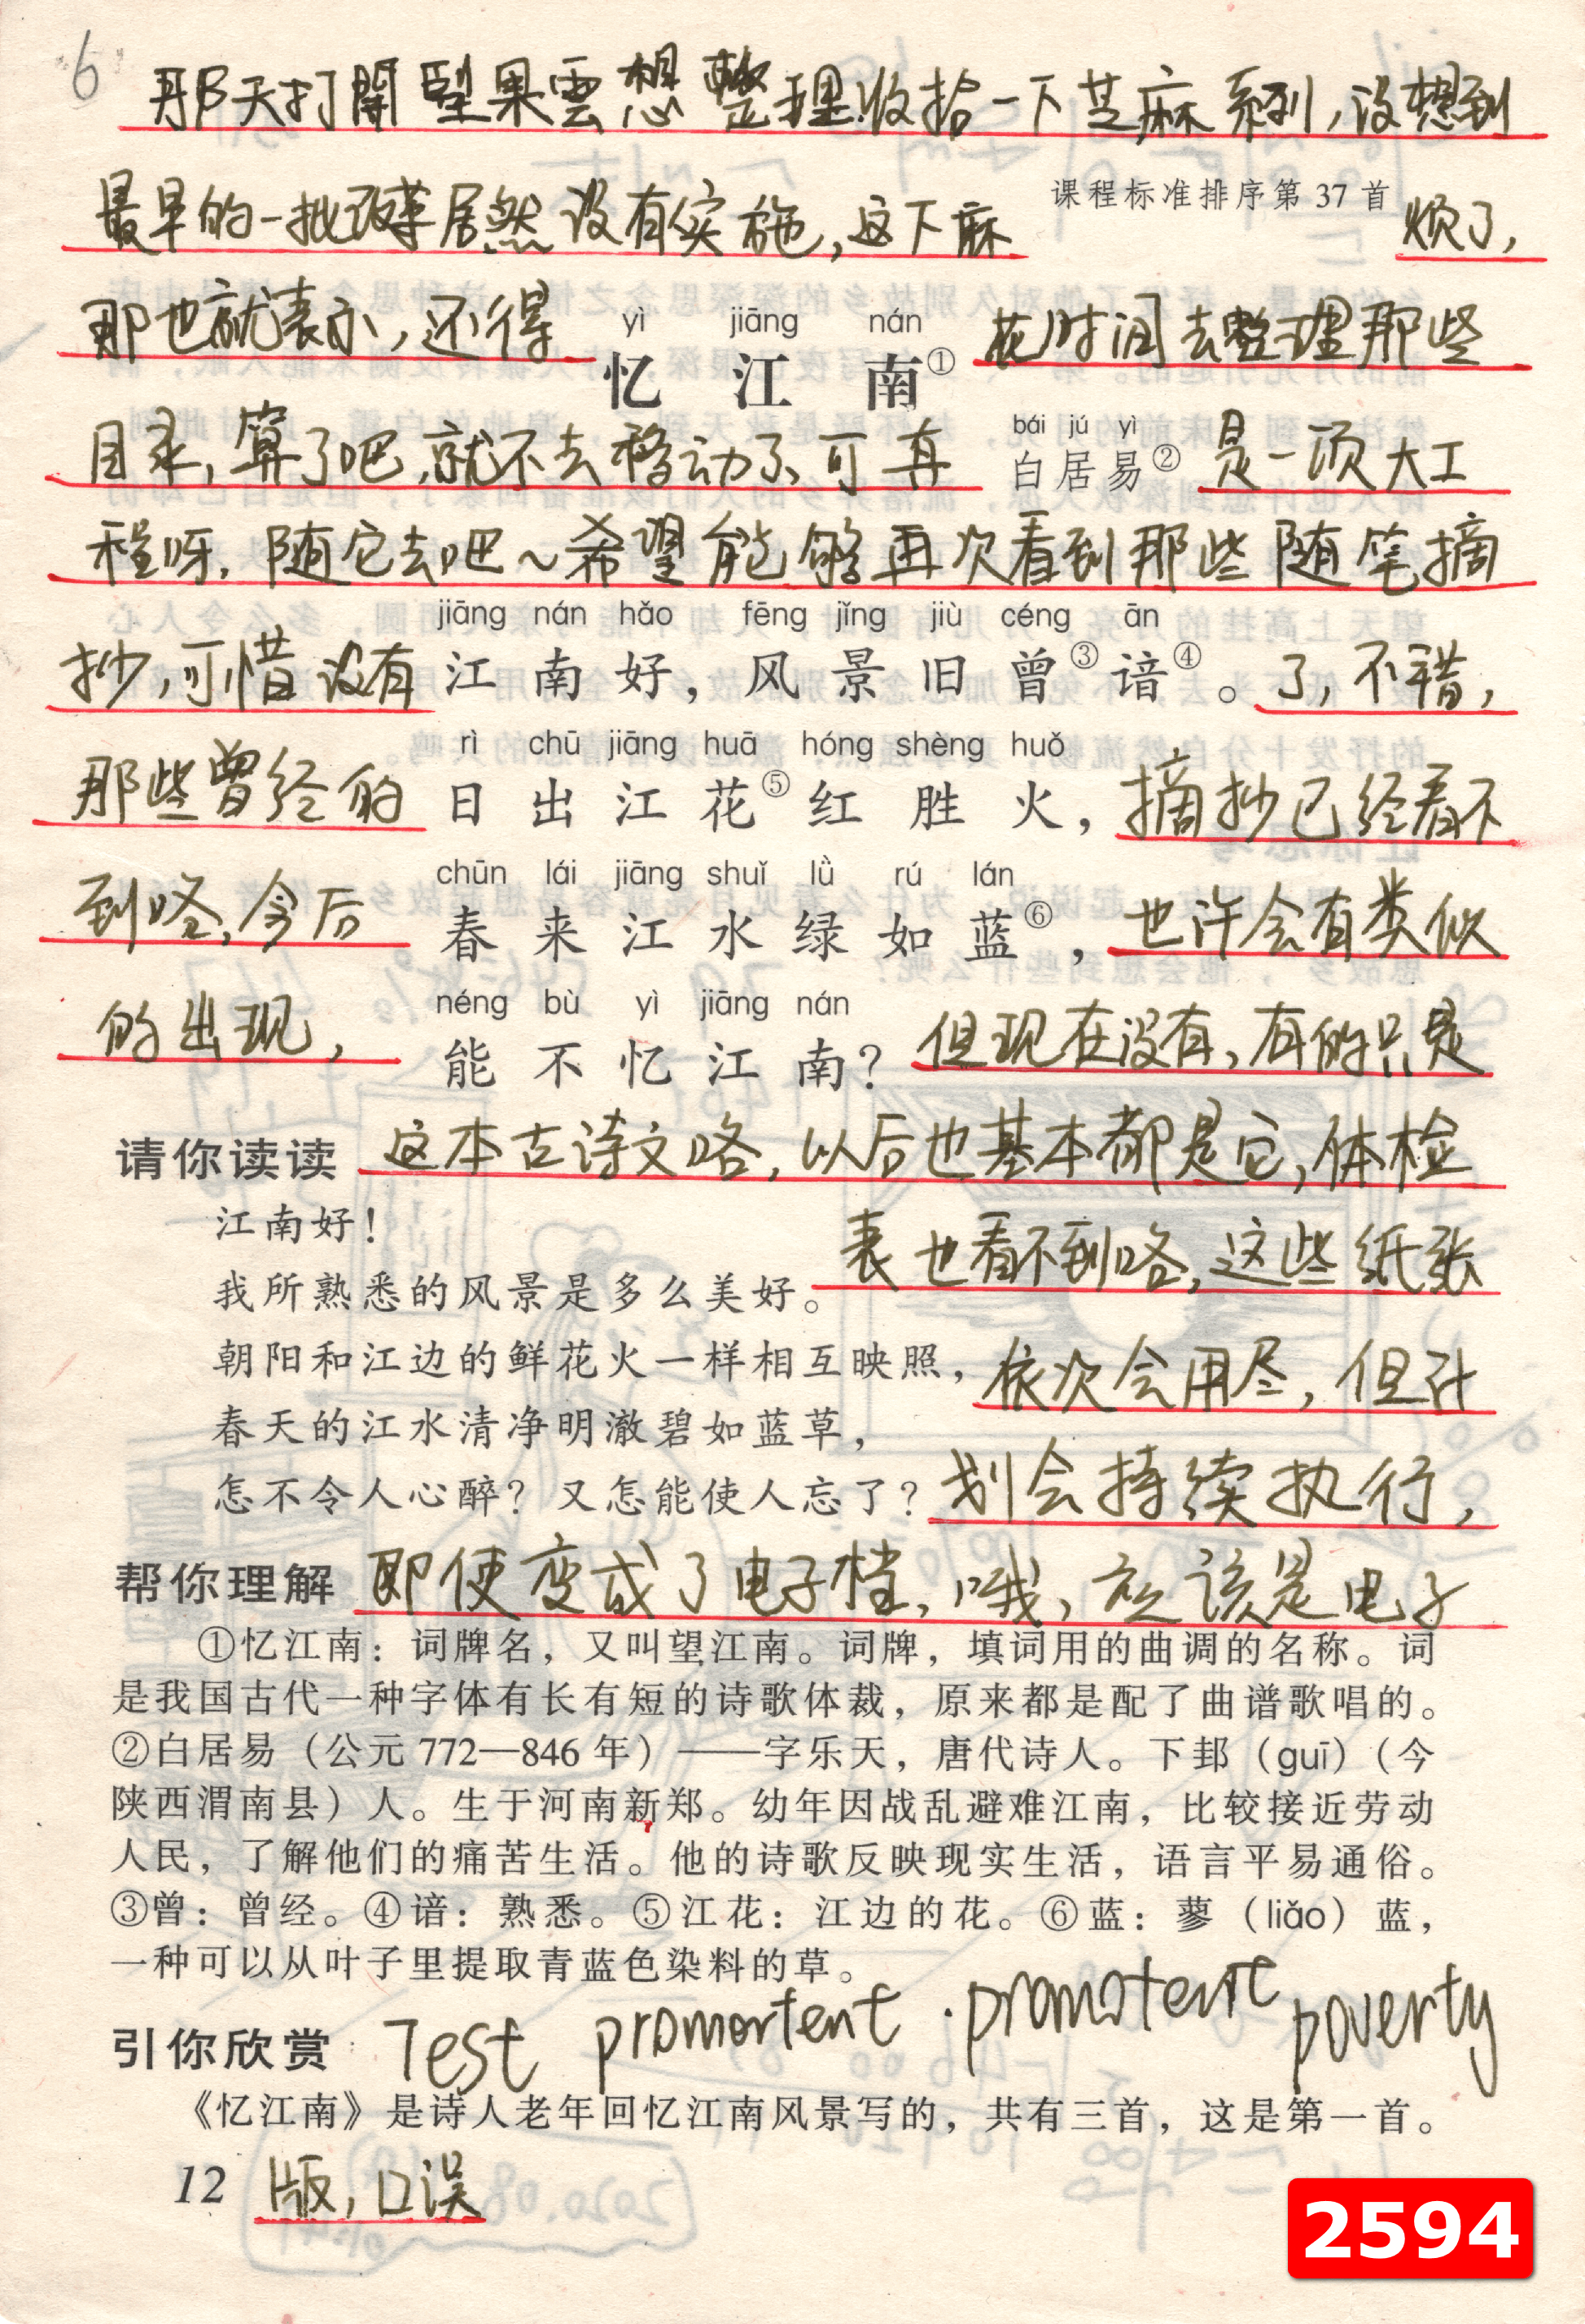 6
那天打開堅果雲想整理收拾一下芝麻系列，没想到
最早的一批改革居然没有实施，这下麻
课程标准排序第 37 首
烦了，
那也就表示，还得
yì jiāng nán
忆江南①
花时间去整理那些
目录，算了吧，就不去移动了，可真
bái jú yì
白居易②
是一项大工
程呀，随它去吧～希望能够再次看到那些随笔摘
jiāng nán hǎo fēng jǐng jiù céng ān
抄，可惜没有
江南好，风景旧曾③谙④。
了，不错，
rì chū jiāng huā hóng shèng huǒ
那些曾经的
日出江花⑤红胜火，
摘抄已经看不
chūn lái jiāng shuǐ lǜ rú lán
到咯，今后
春来江水绿如蓝⑥，
也许会有类似
néng bù yì jiāng nán
的出现，
能不忆江南？
但现在没有，有的只是
请你读读
这本古诗文咯，以后也基本都是它，体检
江南好！
表也看不到咯，这些纸张
我所熟悉的风景是多么美好。
朝阳和江边的鲜花火一样相互映照，
依次会用尽，但计
春天的江水清净明澈碧如蓝草，
怎不令人心醉？又怎能使人忘了？
划会持续执行，
帮你理解
即使变成了电子档，哦，应该是电子
①忆江南：词牌名，又叫望江南。词牌，填词用的曲调的名称。词
是我国古代一种字体有长有短的诗歌体裁，原来都是配了曲谱歌唱的。
②白居易（公元 772—846 年）——字乐天，唐代诗人。下邽（guī）（今
陕西渭南县）人。生于河南新郑。幼年因战乱避难江南，比较接近劳动
人民，了解他们的痛苦生活。他的诗歌反映现实生活，语言平易通俗。
③曾：曾经。④谙：熟悉。⑤江花：江边的花。⑥蓝：蓼（liǎo）蓝，
一种可以从叶子里提取青蓝色染料的草。
引你欣赏
Test promortent · promotent poverty
《忆江南》是诗人老年回忆江南风景写的，共有三首，这是第一首。
12
版，口误
2594